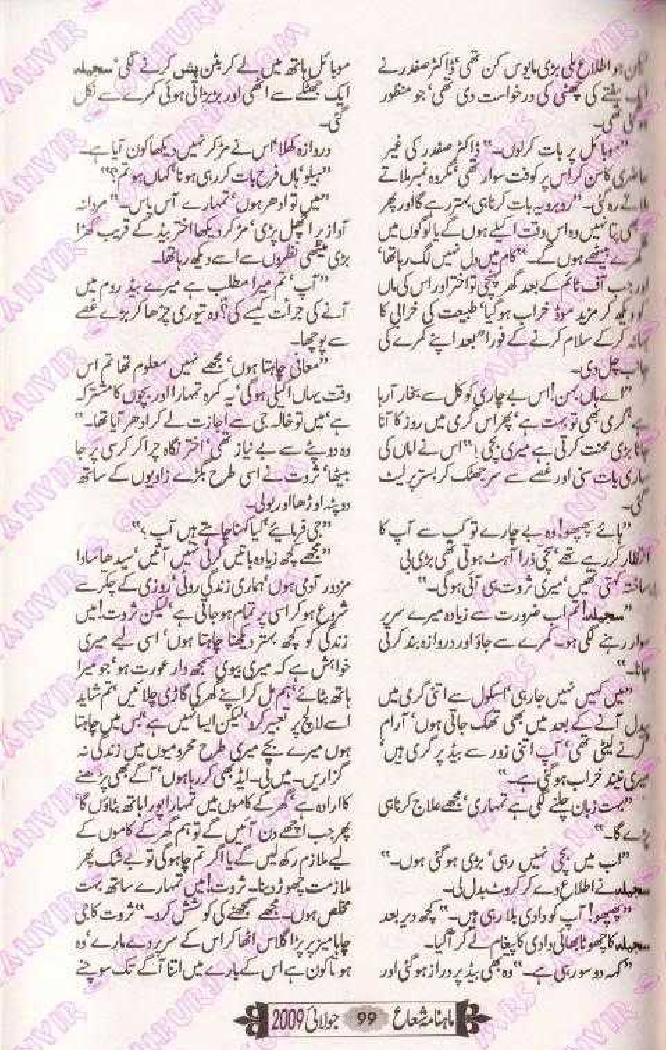 لیکن جو اطلاع ملی بڑی مایوس کن تھی، ڈاکٹر صفدر نے
ایک ہفتے کی چھٹی کی درخواست دی تھی، جو منظور
ہو گئی تھی۔
"موبائل پر بات کرلوں۔" ڈاکٹر صفدر کی غیر
حاضری کا سن کر اس پر کوفت سوار تھی، مگر وہ نمبر ملاتے
ملاتے رہ گئی۔ "روبرو یہ بات کرنا ہی بہتر رہے گا اور پھر
ابھی پتا نہیں وہ اس وقت اکیلے ہوں گے یا لوگوں میں
گھرے بیٹھے ہوں گے۔" کام میں دل نہیں لگ رہا تھا،
اور جب آف ٹائم کے بعد گھر پہنچی تو اختر اور اس کی ماں
کو دیکھ کر مزید موڈ خراب ہو گیا، طبیعت کی خرابی کا
بہانہ کر کے سلام کرنے کے فورا" بعد اپنے کمرے کی
جانب چل دی۔
"اے ہاں بہن! اس بے چاری کو کل سے بخار آرہا
ہے، گرمی بھی تو بہت ہے، پھر اس گرمی میں روز کا آنا
جانا بڑی محنت کرتی ہے میری بچی!" اس نے اماں کی
ساری بات سنی اور غصے سے سر جھٹک کر بستر پر لیٹ
گئی۔
"ہائے پھپھو! وہ بے چارے تو کب سے آپ کا
انتظار کر رہے تھے، بچی ذرا آہٹ ہوتی تھی بڑی بی
ساختہ کہتی تھیں، میری ثروت ہی آئی ہوگی۔"
"سجیلہ! تم اب ضرورت سے زیادہ میرے سر پر
سوار رہنے لگی ہو، کمرے سے جاؤ اور دروازہ بند کرتی
جانا۔"
"میں کہیں نہیں جا رہی، اسکول سے اتنی گرمی میں
پیدل آنے کے بعد میں بھی تھک جاتی ہوں، آرام
کرنے لیٹی تھی، آپ اتنی زور سے بیڈ پر گری ہیں،
میری نیند خراب ہو گئی ہے۔"
"بہت زبان چلنے لگی ہے تمہاری، مجھے علاج کرنا ہی
پڑے گا۔"
"اب میں بچی نہیں رہی، بڑی ہو گئی ہوں۔"
سجیلہ نے اطلاع دے کر کروٹ بدل لی۔
"پھپھو! آپ کو دادی بلا رہی ہیں۔" کچھ دیر بعد
سجیلہ کا چھوٹا بھائی دادی کا پیغام لے کر آگیا۔
"کہہ دو سو رہی ہے۔" وہ بھی بیڈ پر دراز ہو گئی اور
موبائل ہاتھ میں لے کر بٹن پش کرنے لگی، سجیلہ
ایک جھٹکے سے اٹھی اور بڑبڑاتی ہوئی کمرے سے نکل
گئی۔
دروازہ کھلا، اس نے مڑ کر نہیں دیکھا کون آیا ہے۔
"ہیلو، ہاں فرح بات کر رہی ہو نا، کہاں ہو تم؟"
"میں تو ادھر ہوں، تمہارے آس پاس۔" مردانہ
آواز پر اچھل پڑی، مڑ کر دیکھا اختر بیڈ کے قریب کھڑا
بڑی میٹھی نظروں سے اسے دیکھ رہا تھا۔
"آپ، تم میرا مطلب ہے میرے بیڈ روم میں
آنے کی جرأت کیسے کی؟" وہ تیوری چڑھا کر بڑے غصے
سے پوچھا۔
"معافی چاہتا ہوں، مجھے نہیں معلوم تھا تم اس
وقت یہاں اکیلی ہوگی، یہ کمرہ تمہارا اور بچوں کا مشترکہ
ہے، میں تو خالہ جی سے اجازت لے کر ادھر آیا تھا۔"
وہ دوپٹے سے بے نیاز تھی، اختر نگاہ چرا کر کرسی پر جا
بیٹھا، ثروت نے اسی طرح بگڑے زاویوں کے ساتھ
دوپٹہ اوڑھا اور بولی۔
"جی فرمائیے، کیا کہنا چاہتے ہیں آپ؟"
"مجھے کچھ زیادہ باتیں کرنی نہیں آتیں، سیدھا سادا
مزدور آدمی ہوں، ہماری زندگی روٹی، روزی کے چکر سے
شروع ہو کر اسی پر تمام ہو جاتی ہے، لیکن ثروت! میں
زندگی کو کچھ بہتر دیکھنا چاہتا ہوں، اسی لیے میری
خواہش ہے کہ میری بیوی سمجھ دار عورت ہو، جو میرا
ہاتھ بٹائے، ہم مل کر اپنے گھر کی گاڑی چلائیں، تم شاید
اسے لالچ پر تعبیر کرو، لیکن ایسا نہیں ہے، بس میں چاہتا
ہوں میرے بچے میری طرح محرومیوں میں زندگی نہ
گزاریں۔ میں بی۔ ایڈ بھی کر رہا ہوں، آگے بھی پڑھنے
کا ارادہ ہے، گھر کے کاموں میں تمہارا پورا ہاتھ بٹاؤں گا،
پھر جب اچھے دن آئیں گے تو ہم گھر کے کاموں کے
لیے ملازم رکھ لیں گے یا اگر تم چاہو گی تو بے شک پھر
ملازمت چھوڑ دینا۔ ثروت! میں تمہارے ساتھ بہت
مخلص ہوں۔ مجھے سمجھنے کی کوشش کرو۔" ثروت کا جی
چاہا میز پر پڑا گلاس اٹھا کر اس کے سر پر دے مارے، وہ
ہوتا کون ہے اس کے بارے میں اتنا آگے تک سوچنے
ماہنامہ شعاع 99 جولائی 2009